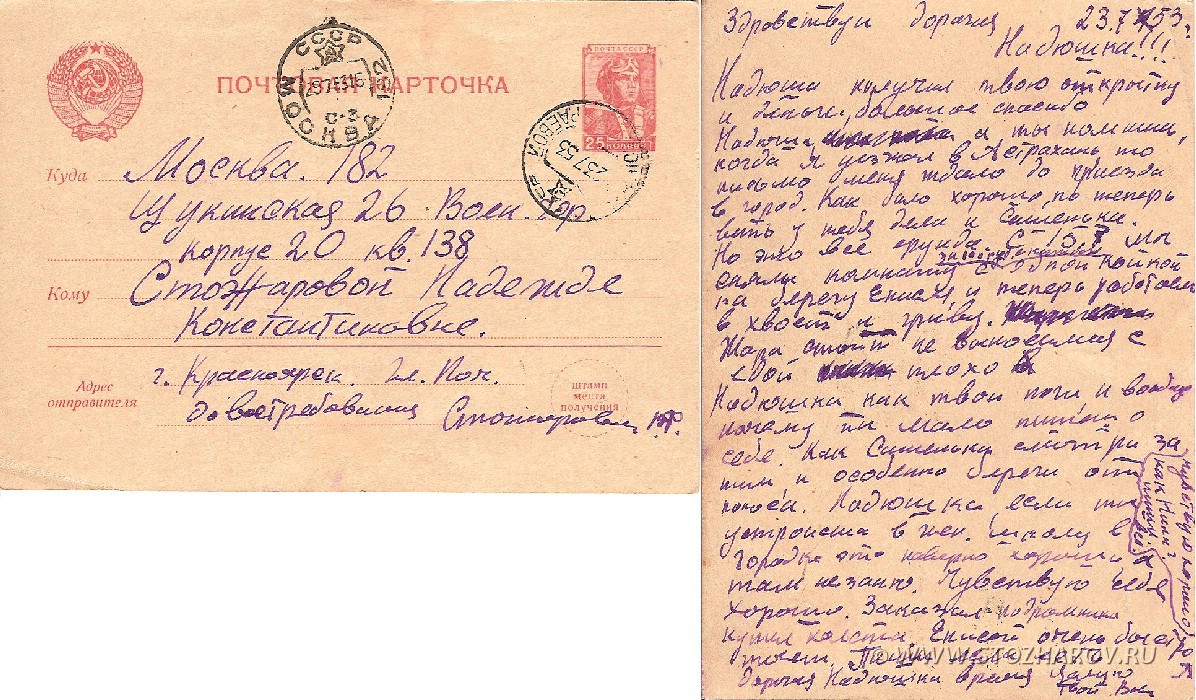 ПОЧТОВАЯ КАРТОЧКА
СССР
МОСКВА
С-3
ПОЧТА СССР
25 КОПЕЕК
23 7 53
Куда Москва. 182
Щукинская 26 Воен. гор
корпус 20 кв. 138
Кому Стожаровой Надежде
Константиновне.
Адрес отправителя
г. Красноярск. Гл. Поч.
до востребования Стожаров
штамп
места
получения
Здравствуй дорогая 23.7 53
Надюшка!!!
Надюша получил твою открытку
и деньги, большое спасибо
Надюша а ты помнишь,
когда я уезжал в Астрахань то
письмо меня ждало до приезда
в город. Как было хорошо, но теперь
ведь у тебя дела и Сашенька.
Но это всё ерунда. С 15 7 мы
сняли комнату с одной койкой
на берегу Енисея, и теперь работаем
в хвост и гриву.
Жара стоит не выносимая с
едой плохо
Надюшка как твои ноги и вообще
почему ты мало пишешь о
себе. Как Сашенька смотри за
ним и особенно береги от
поноса. Надюшка если ты
устроишь в школу в
городке это наверно хорошо
там не знаю. Чувствую себя
хорошо. Заказал подрамники
купил холста. Енисей очень быстро
течёт. Пиши
дорогая Надюшка время Целую
Твой
© WWW.STOZHAROV.RU